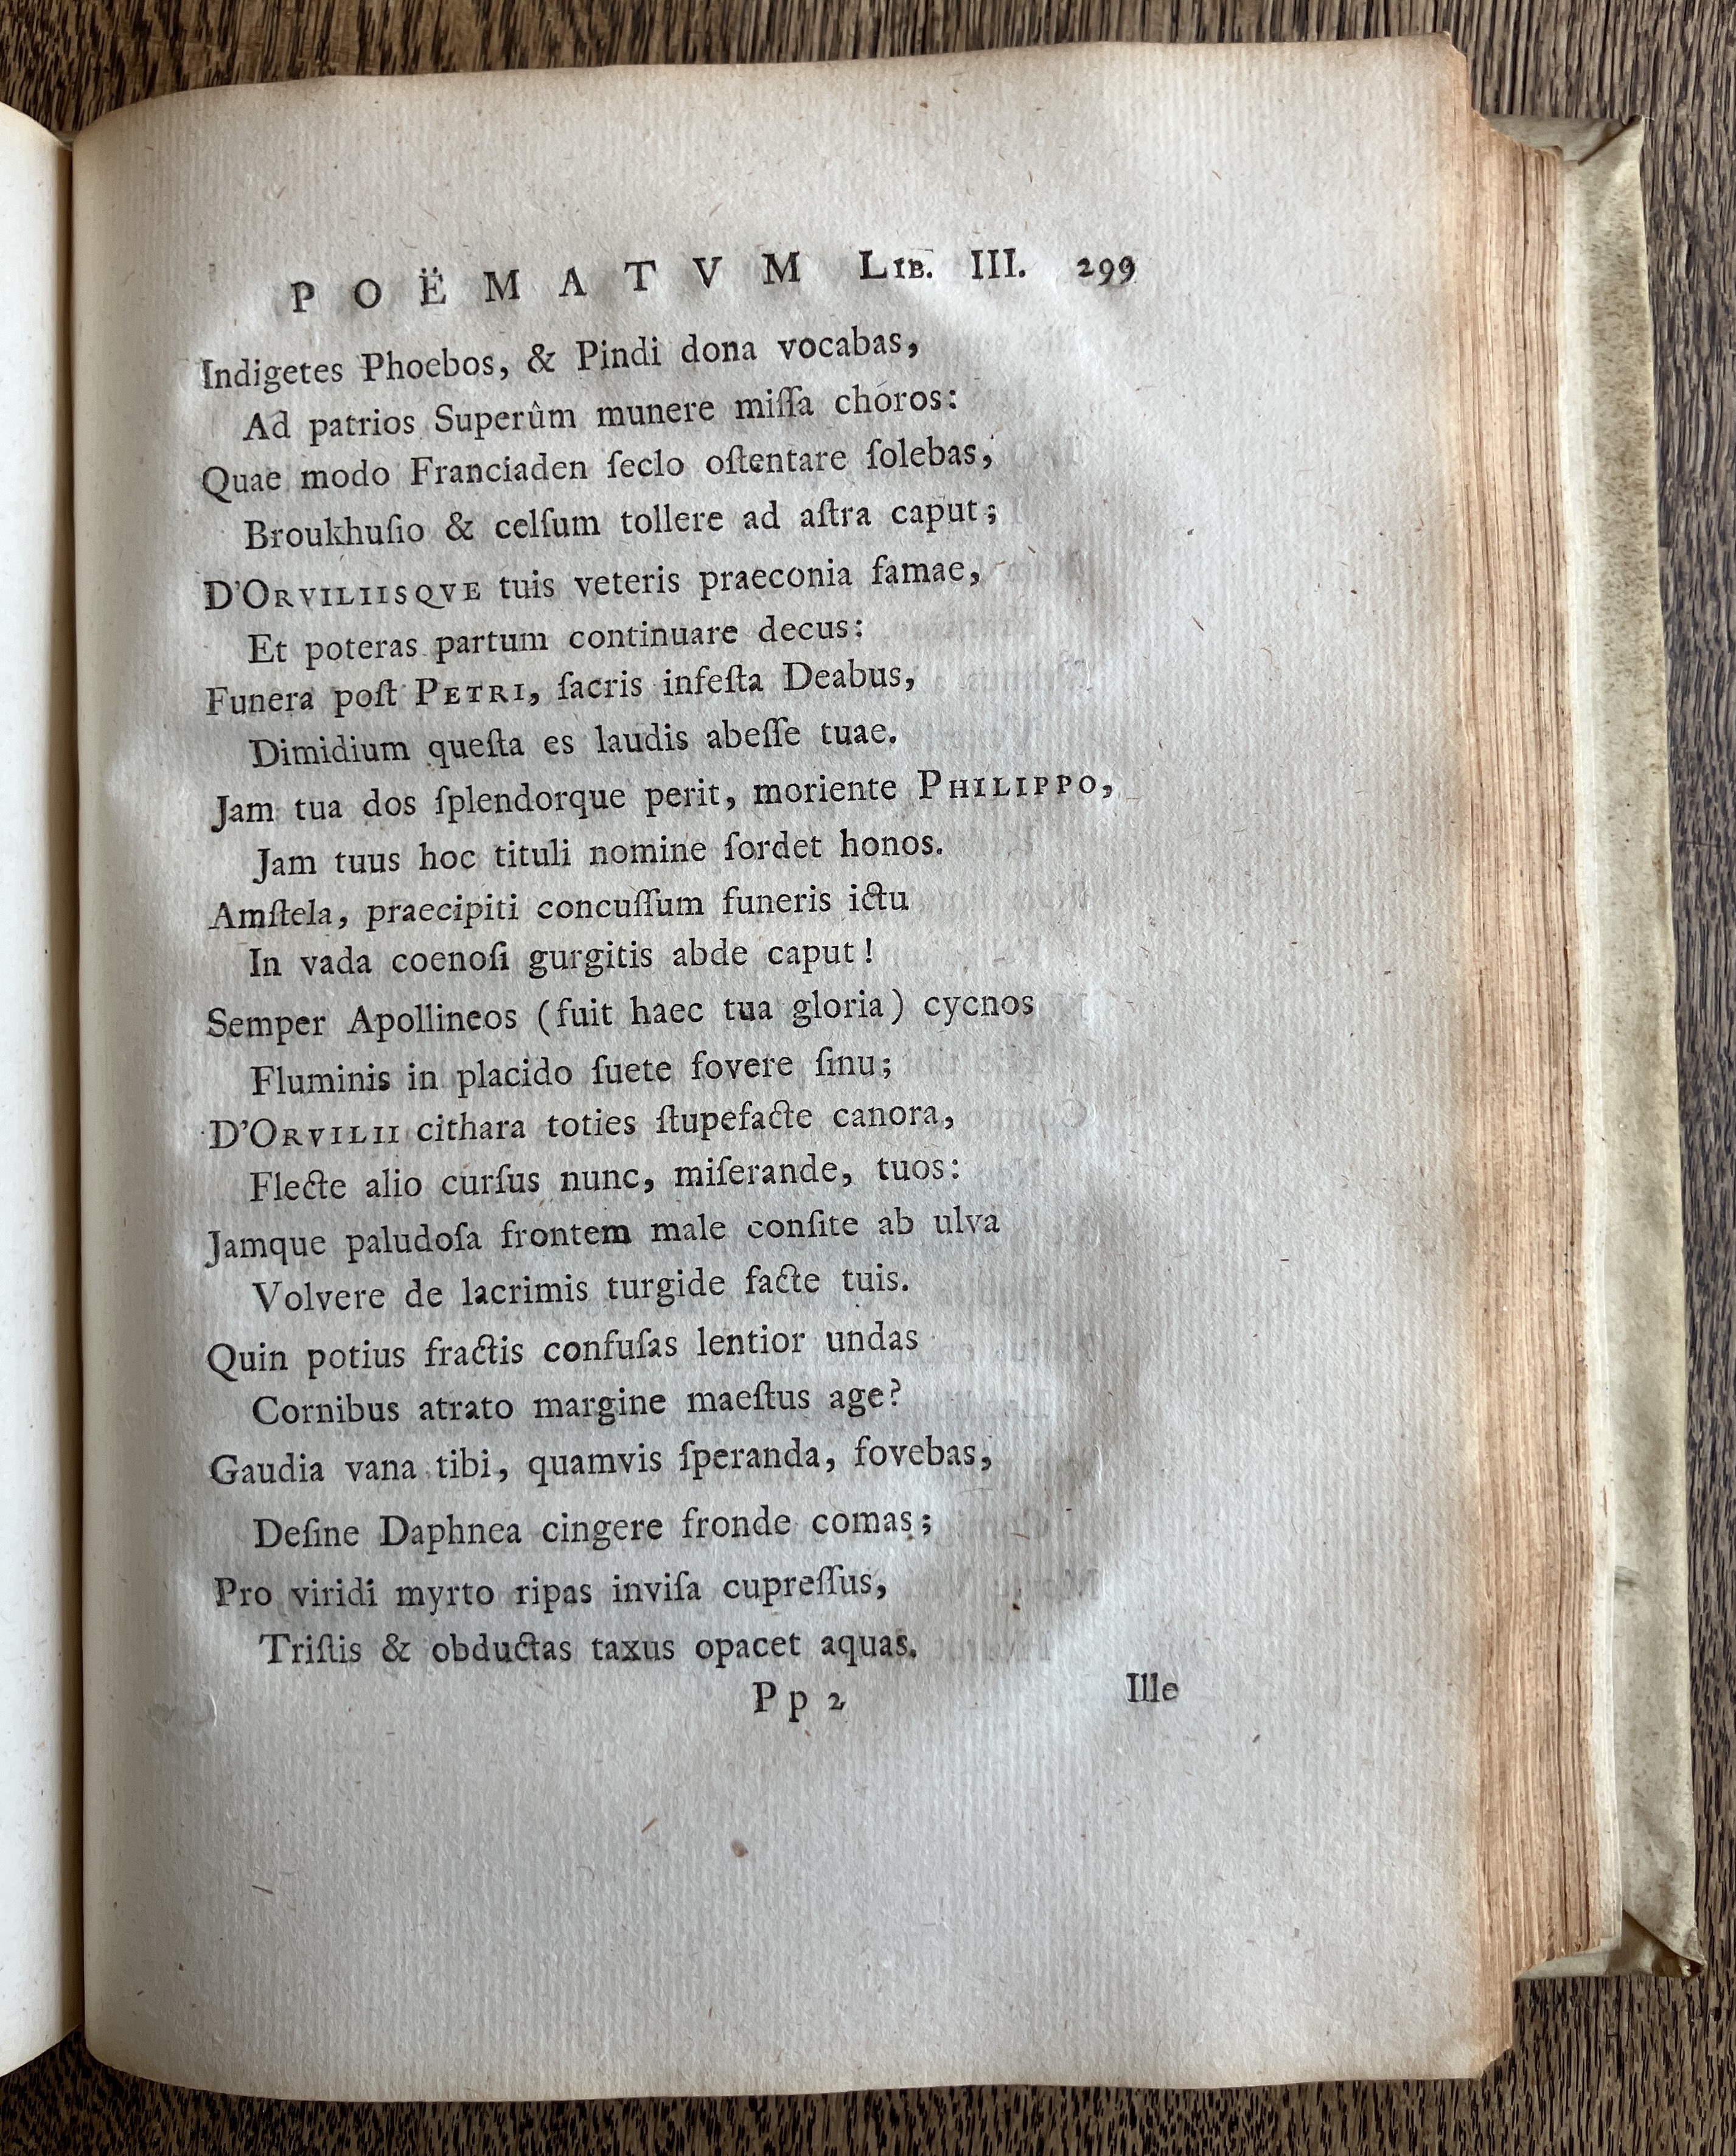 POËMATVM LIB. III. 299
Indigetes Phoebos, & Pindi dona vocabas,
Ad patrios Superûm munere miſſa choros:
Quae modo Franciaden ſeclo oſtentare ſolebas,
Broukhuſio & celſum tollere ad aſtra caput;
D'ORVILIISQVE tuis veteris praeconia famae,
Et poteras partum continuare decus:
Funera poſt PETRI, ſacris infeſta Deabus,
Dimidium queſta es laudis abeſſe tuae.
Jam tua dos ſplendorque perit, moriente PHILIPPO,
Jam tuus hoc tituli nomine ſordet honos.
Amſtela, praecipiti concuſſum funeris ictu
In vada coenoſi gurgitis abde caput!
Semper Apollineos (fuit haec tua gloria) cycnos
Fluminis in placido ſuete fovere ſinu;
D'ORVILII cithara toties ſtupefacte canora,
Flecte alio curſus nunc, miſerande, tuos:
Jamque paludoſa frontem male conſite ab ulva
Volvere de lacrimis turgide facte tuis.
Quin potius fractis confuſas lentior undas
Cornibus atrato margine maeſtus age?
Gaudia vana tibi, quamvis ſperanda, fovebas,
Deſine Daphnea cingere fronde comas;
Pro viridi myrto ripas inviſa cupreſſus,
Triſtis & obductas taxus opacet aquas.
Pp 2 Ille